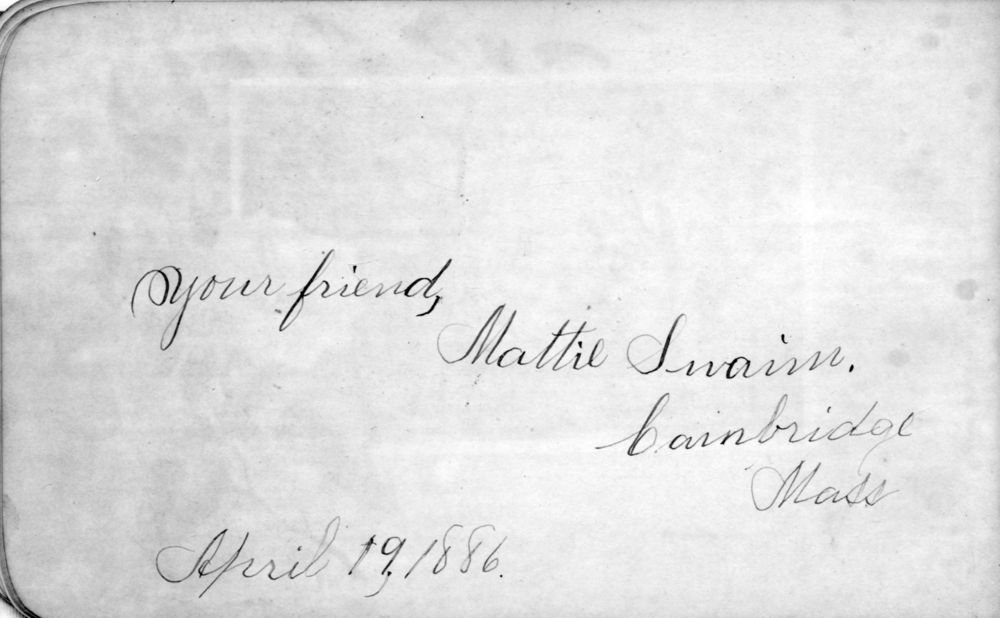 Your friend,
Mattie Swaim.
Cambridge
Mass
April 19, 1886.